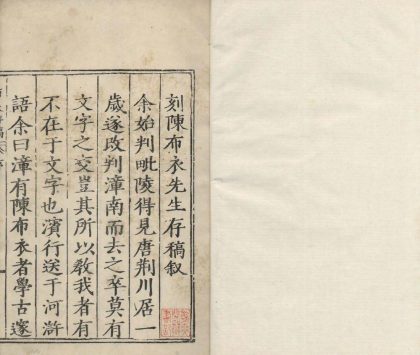 刻陳布衣先生存稿叙
余始判毗陵得見唐荆川居一
歳遂改判漳南而去之卒莫有
文字之交豈其所以教我者有
不在于文字也濱行送于河滸
語余曰漳有陳布衣者學古邃